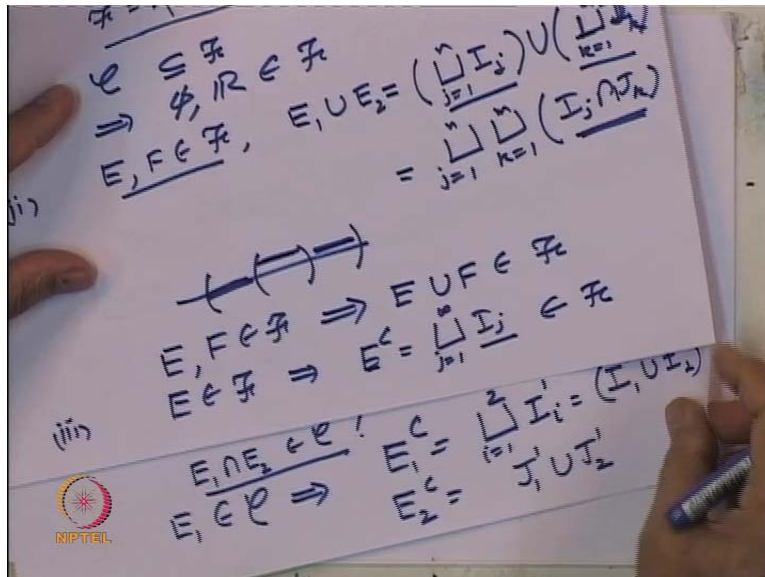 C ⊆ F
⇒ φ, ℝ ∈ F
ii) E, F ∈ F, E₁ ∪ E₂ = (⊔_{j=1}^{n} I_j) ∪ (⊔_{k=1}
= ⊔_{j=1}^{n} ⊔_{k=1}^{n} (I_j ∩ J_k)
E, F ∈ F ⇒ E ∪ F ∈ F
(iii) E ∈ F ⇒ E^c = ⊔_{j=1}^{∞} I_j ∈ F
E₁ ∩ E₂ ∈ C !
E₁ ∈ C ⇒ E₁^c = ⊔_{i=1}^{2} I'_i = (I₁ ∪ I₂)
E₂^c = J'₁ ∪ J'₂
NPTEL